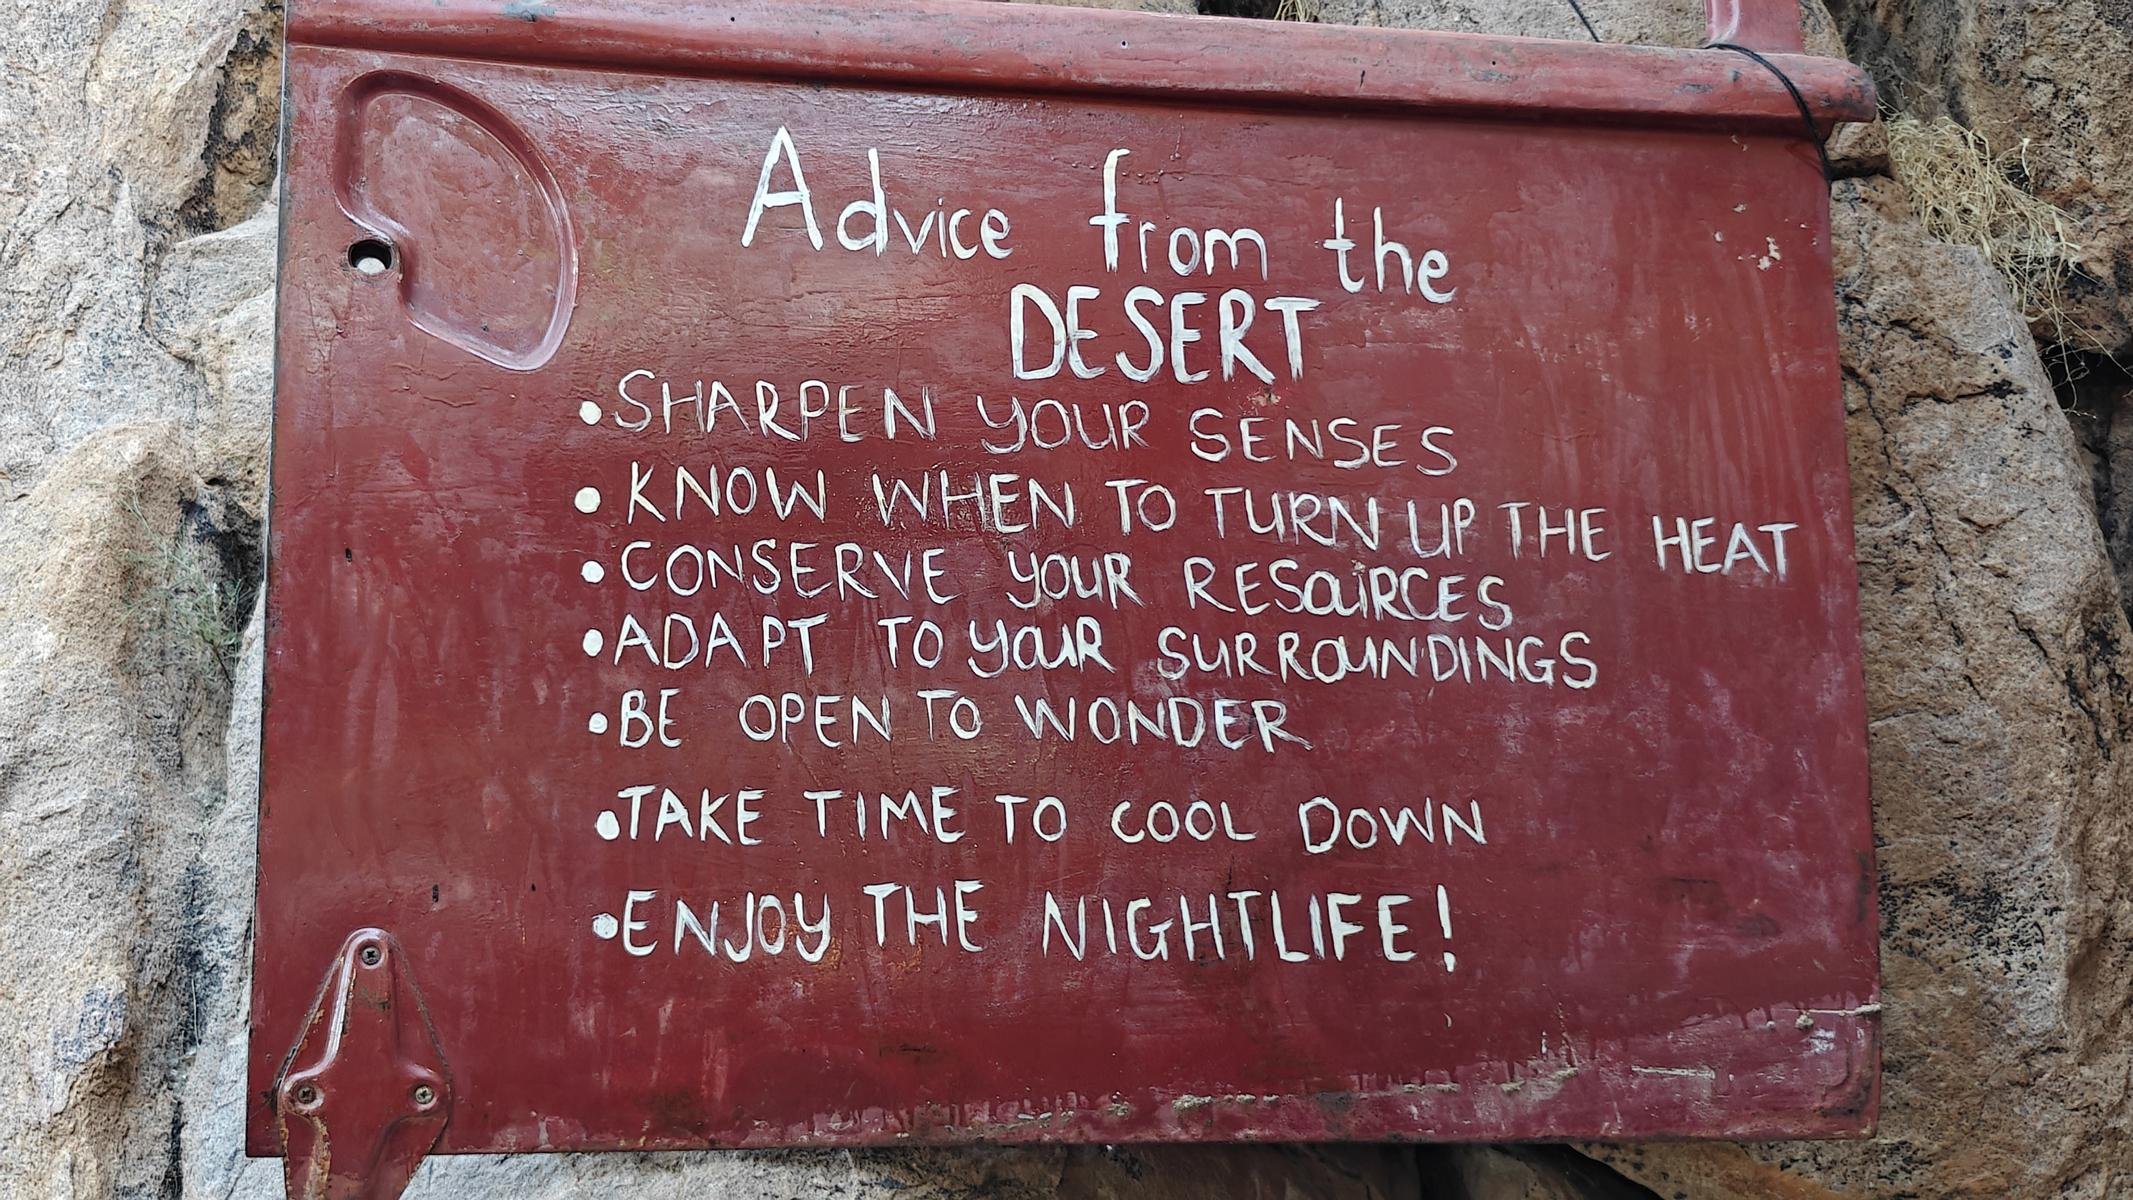 Advice from the
DESERT
•SHARPEN YOUR SENSES
•KNOW WHEN TO TURN UP THE HEAT
•CONSERVE YOUR RESOURCES
•ADAPT TO YOUR SURROUNDINGS
•BE OPEN TO WONDER
•TAKE TIME TO COOL DOWN
•ENJOY THE NIGHTLIFE!